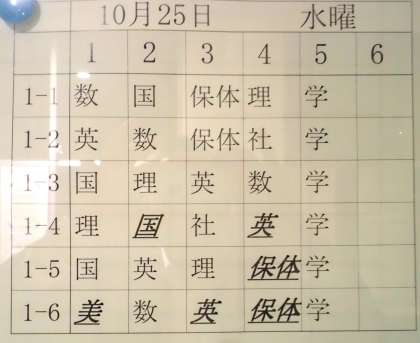 10月25日 水曜
1 2 3 4 5 6
1-1 数 国 保体 理 学
1-2 英 数 保体 社 学
1-3 国 理 英 数 学
1-4 理 国 社 英 学
1-5 国 英 理 保体 学
1-6 美 数 英 保体 学